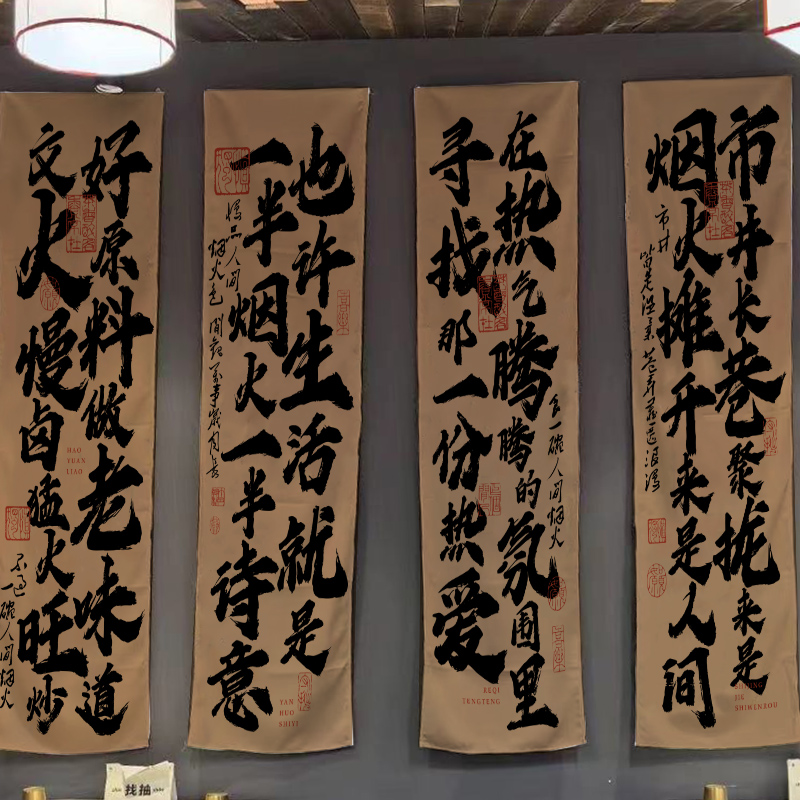 市井长巷聚拢来是
烟火摊开来是人间
市井
SHIWENZOU
在热气腾腾的氛围里
食一碗人间烟火
寻找那一份热爱
TENGTENG
也许生活就是
一半烟火一半诗意
慢品人间
烟火色 闲观万事岁月长
YAN
HUO
SHIYI
好原料做老味道
文火慢卤猛火旺炒
HAO
YUAN
LIAO
不过
一碗人间烟火
找抽